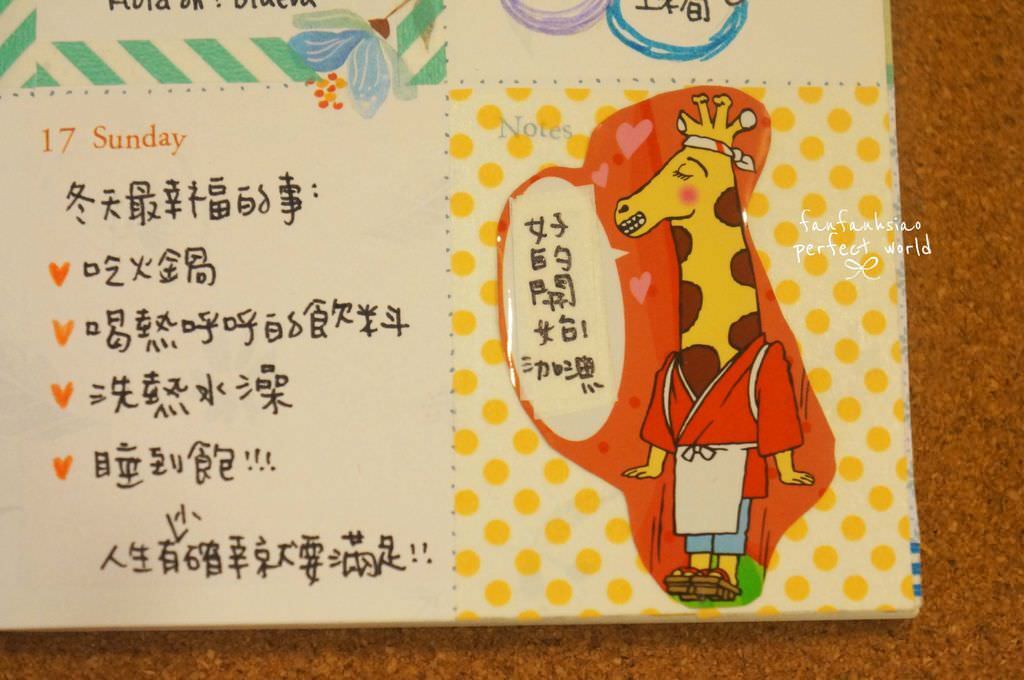 17 Sunday
冬天最幸福的事:
吃火鍋
喝熱呼呼的飲料
洗熱水澡
睡到飽!!!
人生有小確幸就要滿足!!
Notes
好的開始
fanfanhsiao
perfect world